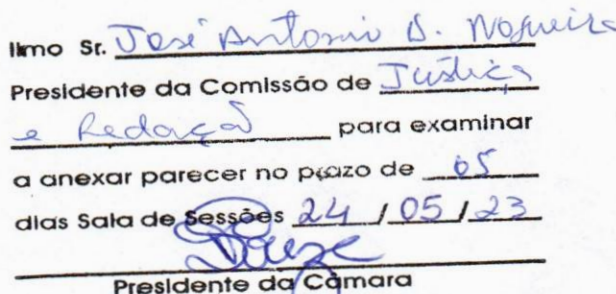 Ilmo Sr. José Antonio D. Nogueira
Presidente da Comissão de Justiça
e Redação para examinar
a anexar parecer no prazo de 05
dias Sala de Sessões 24 / 05 / 23
Presidente da Câmara